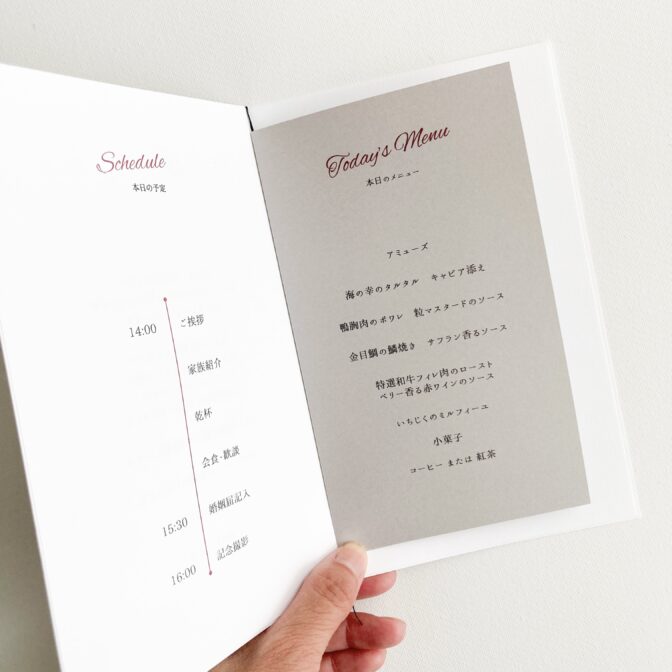 Schedule
本日の予定
14:00 ご挨拶
家族紹介
乾杯
会食・歓談
15:30 婚姻届記入
16:00 記念撮影
Today's Menu
本日のメニュー
アミューズ
海の幸のタルタル　キャビア添え
鴨胸肉のポワレ　粒マスタードのソース
金目鯛の鱗焼き　サフラン香るソース
特選和牛フィレ肉のロースト
ベリー香る赤ワインのソース
いちじくのミルフィーユ
小菓子
コーヒー または 紅茶